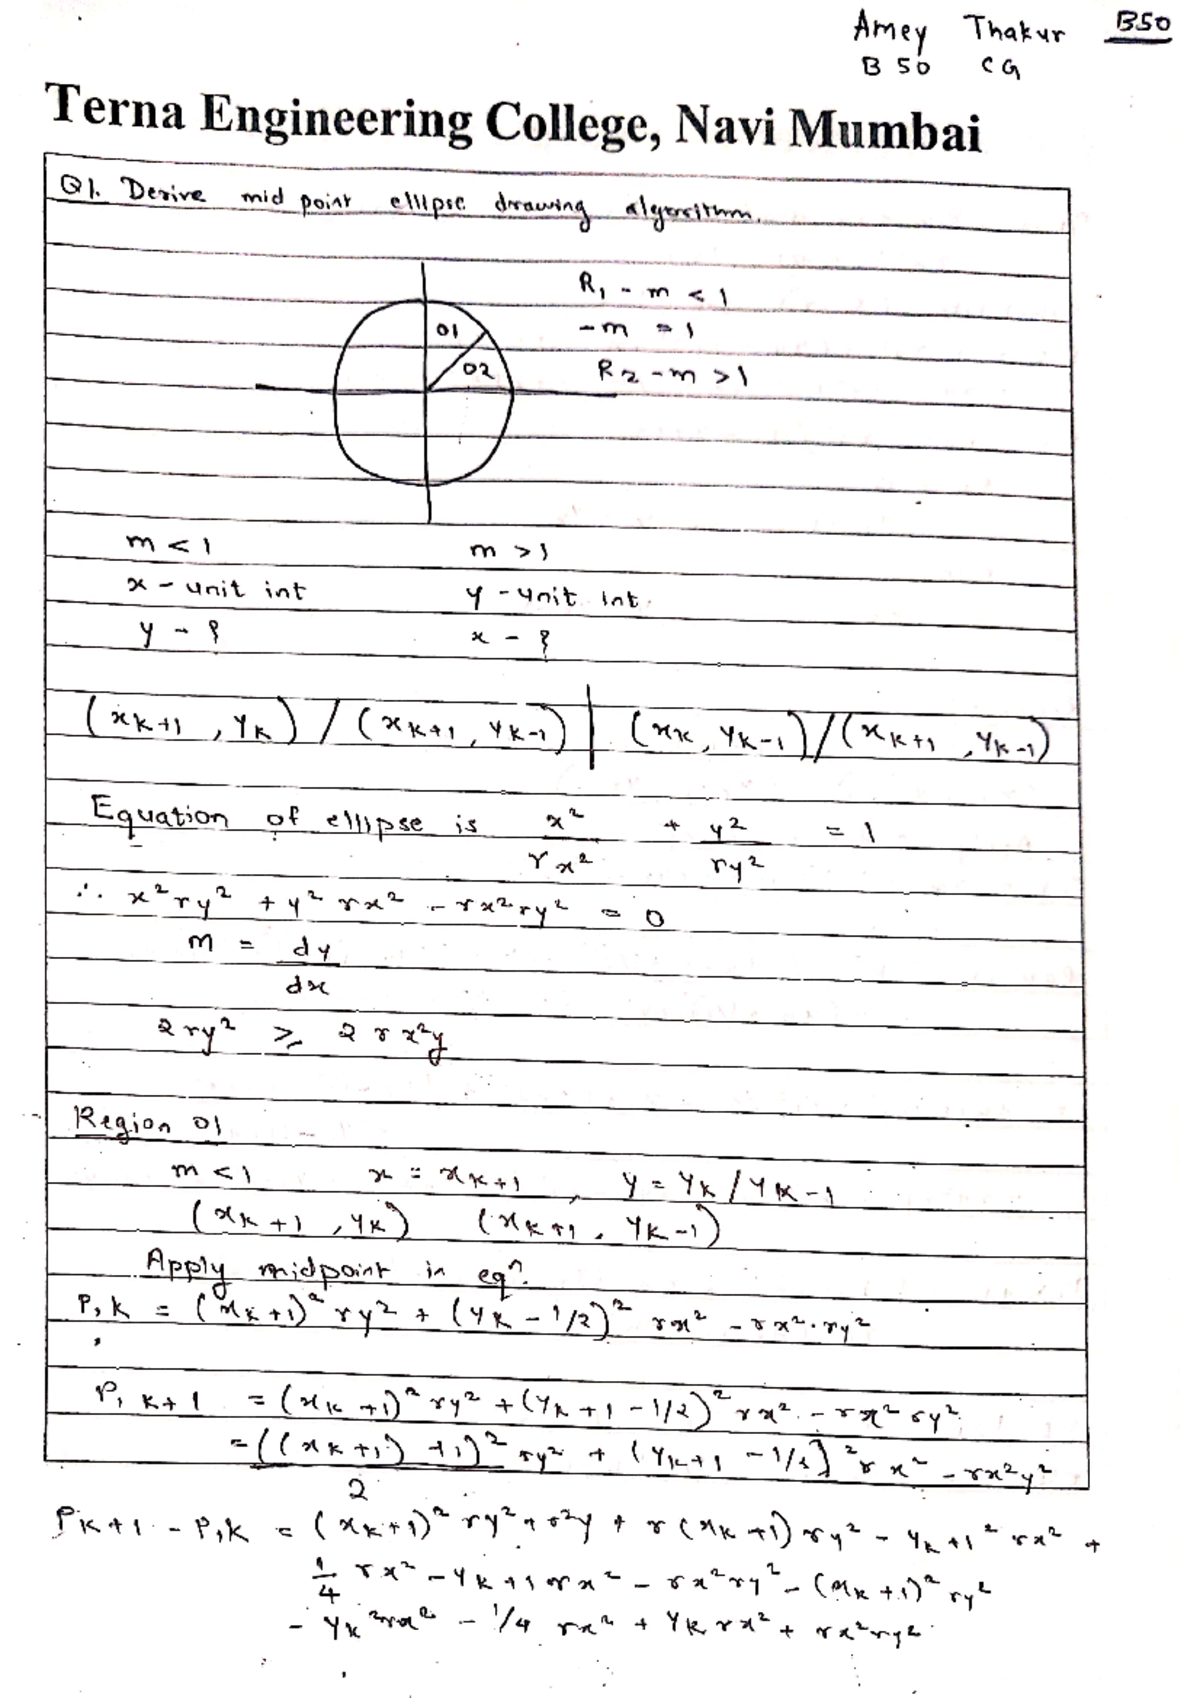 Amey Thakur B50
B 50 CG
Terna Engineering College, Navi Mumbai
Q1. Derive mid point ellipse drawing algorithm.
R₁ - m < 1
01
- m = 1
02
R2 - m > 1
m < 1 m > 1
x - unit int y - unit int.
y - ? x - ?
(xk+1, yk) / (xk+1, yk-1) | (xk, yk-1) / (xk+1, yk-1)
Equation of ellipse is x²/rx² + y²/ry² = 1
∴ x²ry² + y²rx² - rx²ry² = 0
m = dy/dx
2ry² ≥ 2rx²y
Region 01
m < 1 x = xk+1, y = yk / yk-1
(xk+1, yk) (xk+1, yk-1)
Apply midpoint in eqⁿ.
P,k = (xk+1)² ry² + (yk - 1/2)² rx² - rx².ry²
P, k+1 = (xk+1)² ry² + (yk+1 - 1/2)² rx² - rx² ry²
= ((xk+1) +1)² ry² + (yk+1 - 1/2)² rx² - rx²y²
2
Pk+1 - P,k = (xk+1)² ry² + r²y + r(xk+1) ry² - yk+1² rx² +
1/4 rx² - yk+1 rx² - rx²ry² - (xk+1)² ry²
- yk²rx² - 1/4 rx² + yk rx² + rx²ry²